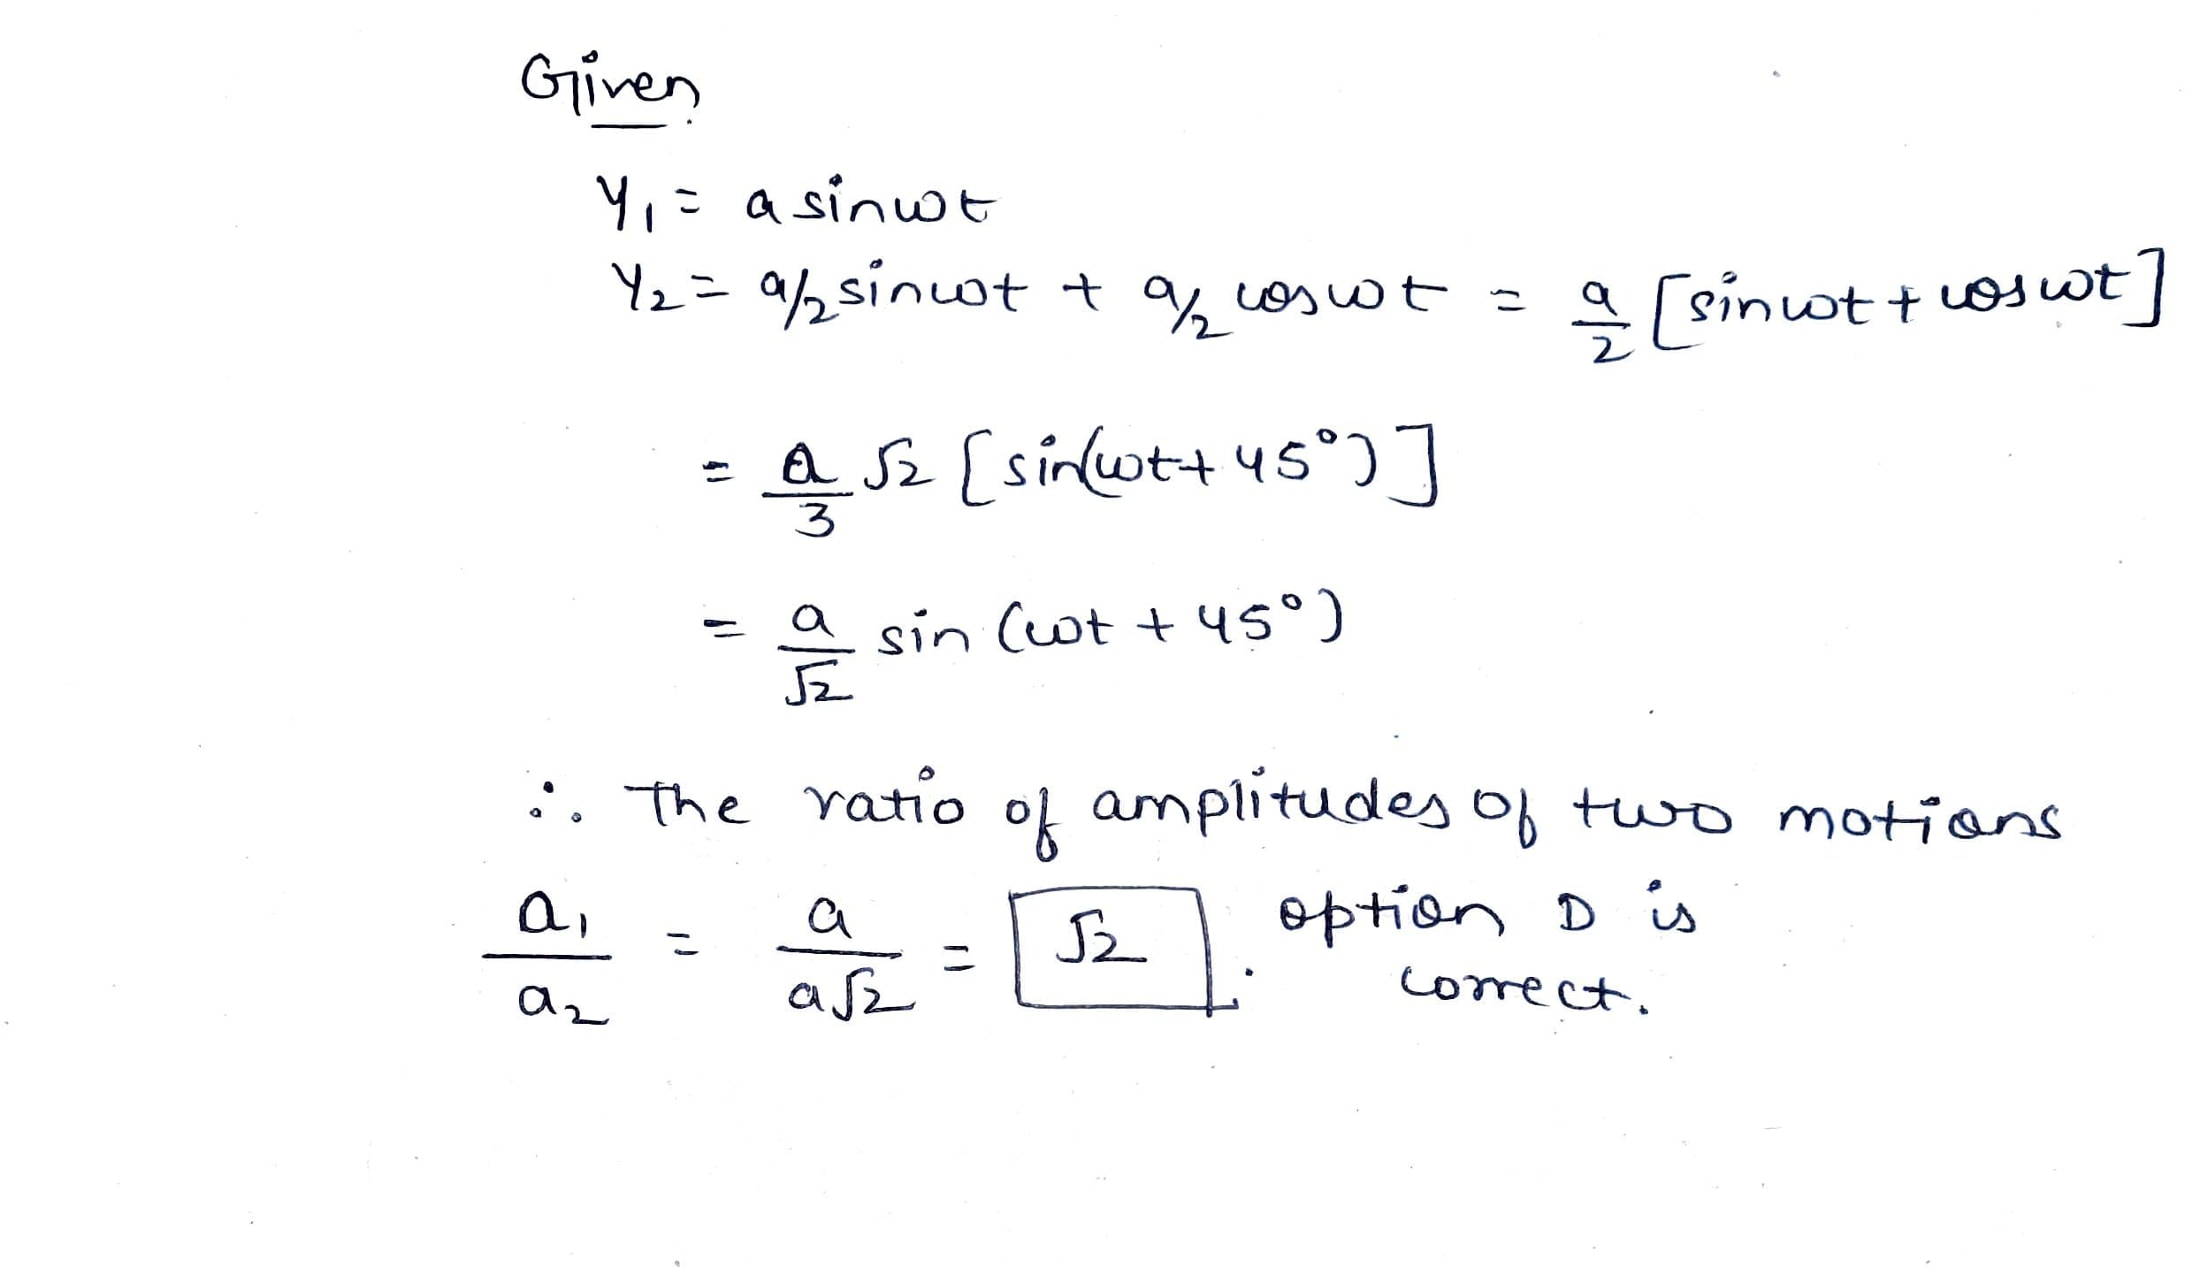 Given
Y₁ = a sinωt
Y₂ = a/2 sinωt + a/2 cosωt = a/2 [sinωt + cosωt]
= a/3 √2 [sin(ωt + 45°)]
= a/√2 sin (ωt + 45°)
∴ The ratio of amplitudes of two motions
a₁/a₂ = a/a√2 = √2. option D is
correct.